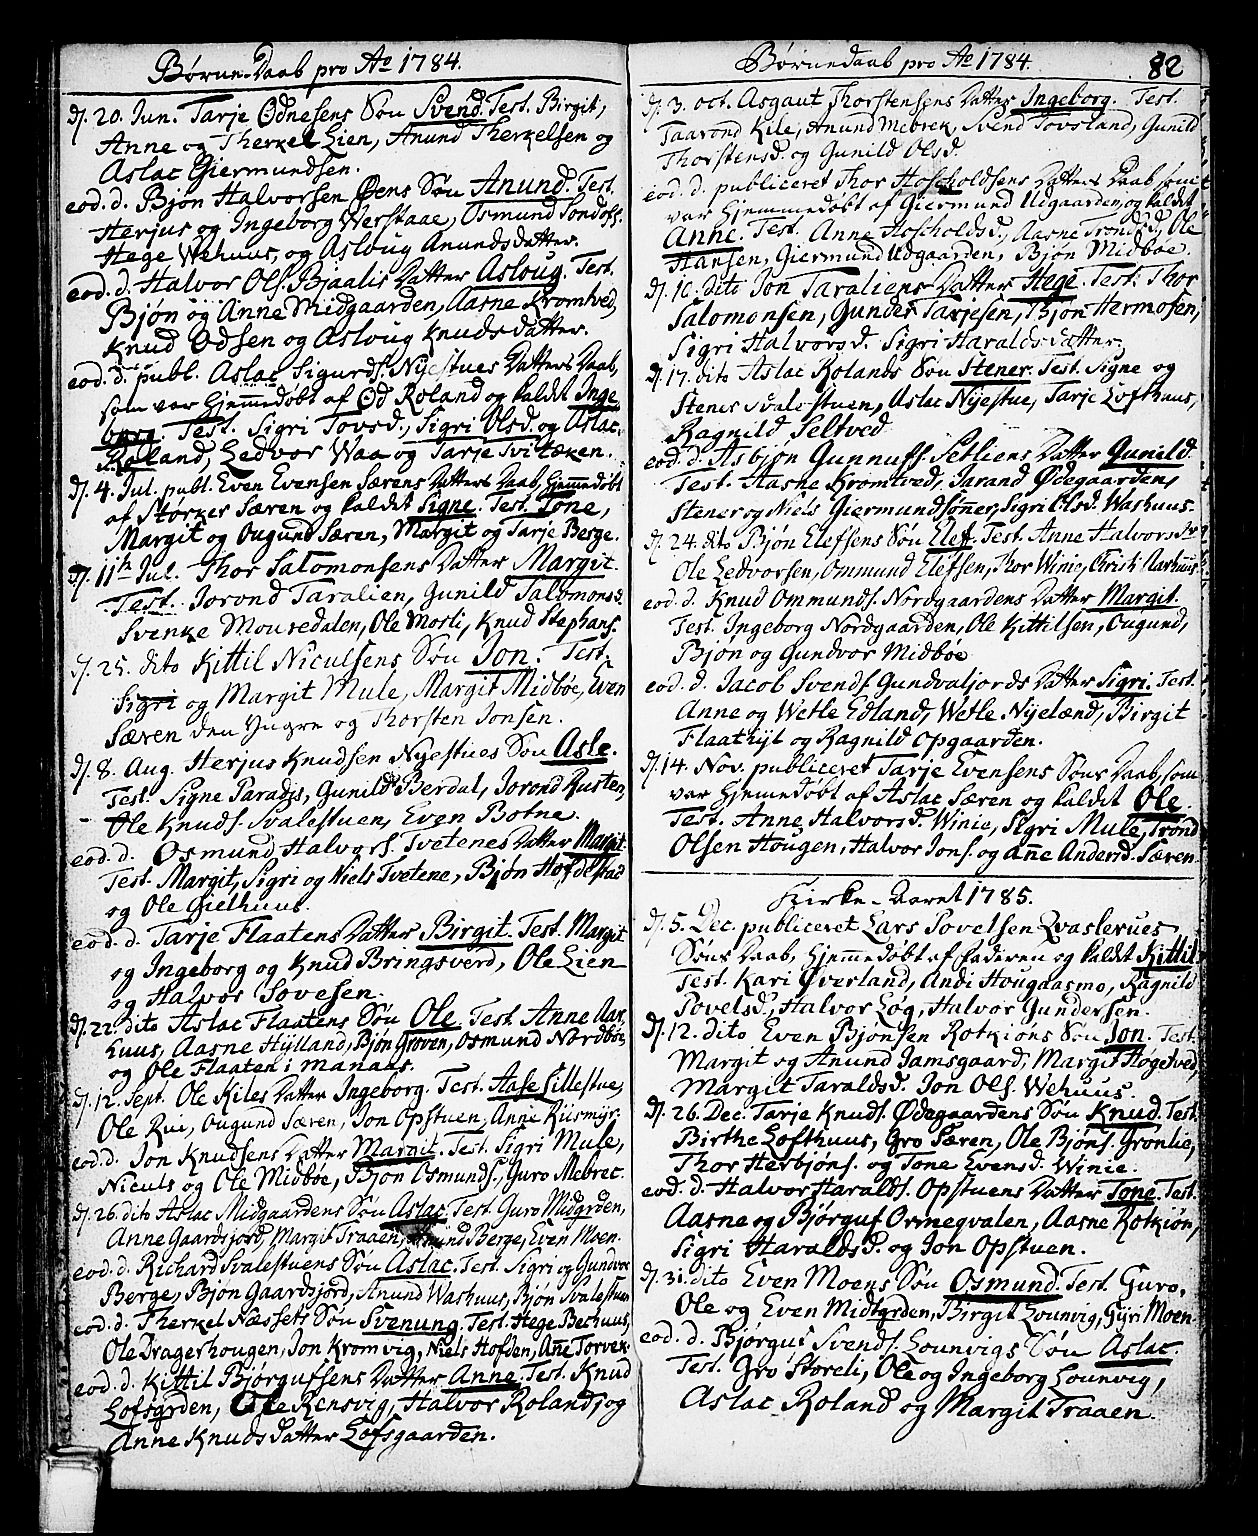 Børne-Daab pro Ao 1784.
d. 20. Jun. Tarje Odnesens Søn Svend. Test. Birgit,
Anne og Therkel Lien, Anund Therkelsen og
Aslac Giermundsen.
eod. d. Bjøn Halvorsen Øens Søn Anund. Test.
Herjus og Ingeborg Werstaae, Osmund Sondass.
Hege Wehuus, og Asloug Anundsdatter.
eod. d. Halvor Ols. Bjaalis Datter Asloug. Test.
Bjøn og Anne Midgaarden, Aasne Kromtved,
Knud Odsen og Asloug Knudsdatter.
eod. d. publ. Aslac Sigurds. Nyestues Datters Daab,
som var hjemmedøbt af Od Roland og kaldt Inge
borg. Test. Sigri Tovsd., Sigri Olsd. og Aslac
Roland, Ledvor Waa og Tarje Svitæken.
d. 4. Jul. publ. Even Evensen Særens Datters Daab, hjemmedøbt
af Størker Særen og kaldt Signe. Test. Tone,
Margit og Ougund Særen, Margit og Tarje Berge.
d. 11te Jul. Thor Salomonsens Datter Margit.
Test. Jorond Taralien, Gunild Salomonsd.
Svenke Mousedalen, Ole Mosli, Knud Stephans.
d. 25. dito Kittil Niculsens Søn Jon. Test.
Sigri og Margit Mule, Margit Midbøe, Even
Særen den Yngre og Thorsten Jonsen.
d. 8. Aug. Herjus Knudsen Nyestues Søn Asle.
Test. Signe Paradis, Gunild Berdal, Jorond Rusten,
Ole Knuds. Svalestuen, Even Botne.
eod. d. Osmund Halvors. Tvetenes Datter Margit.
Test. Margit, Sigri og Niels Tvetene, Bjøn Hofdestad
og Ole Gielhuus.
eod. d. Tarje Flaatens Datter Birgit. Test. Margit
og Ingeborg og Knud Bringsverd, Ole Lien
og Halvor Tovesen.
d. 22. dito Aslac Flaatens Søn Ole. Test. Anne Aar,
huus, Aasne Hylland, Bjøn Groven, Osmund Nordbøe
og Ole Flaaten i Manaas.
d. 12. Sept. Ole Kiles Datter Ingeborg. Test. Aase Lillestue,
Ole Rui, Ougund Særen, Jon Opstuen, Anne Riismyr.
eod. d. Jon Knudsens Datter Margit. Test. Sigri Mule,
Niculs og Ole Midbøe, Bjøn Osmunds., Guro Mebrec.
d. 26. dito Aslac Midgaardens Søn Aslac. Test. Guro Midgrden,
Anne Gaardsjord, Margit Traaen, Anund Berge, Even Moen.
eod. d. Richard Svalestuens Søn Aslac. Test. Sigri og Gundvor
Berge, Bjøn Gaardsjord, Anund Washuus, Bjøn Svalestuen
eod. d. Therkel Næssets Søn Svenung. Test. Hege Bechuus,
Ole Dragerhougen, Jon Kromvig, Niels Hofden, Anne Torvet.
eod. d. Kittil Bjørgufsens Datter Anne. Test. Knud
Lofsgrden, Ole Rensvig, Halvor Roland, og
Anne Knudsdatter Lofsgaarden.
Børnedaab pro Ao 1784.
82
d. 3. oct. Asgaut Thorstensens Datter Ingeborg. Test.
Taarond Kile, Anund Mebrek, Svend Tovsland, Gunild
Thorstensd. og Gunild Olsd.
eod. d. publiceret Thor Hoscholdsens Datters Daab, som
var hjemmedøbt af Giermund Udgaarden, og kaldt
Anne. Test. Anne Hoscholdsd., Aasne Trondsd., Ole
Hansen, Giermund Udgaarden, Bjøn Midbøe.
d. 10. dito Jon Taraliens Datter Hege. Test. Thor
Salomonsen, Gunder Tarjesen, Bjøn Hermosen,
Sigri Halvorsd. Sigri Haraldsdatter.
d. 17. dito Aslac Rolands Søn Stener. Test. Signe og
Stener Svalestuen, Aslac Nyestue, Tarje Lofthuus,
Ragnild Seltved
eod. d. Asbjøn Gunnufs. Setliens Datter Gunild.
Test. Aasne Kromtved, Jarand Ødegaarden,
Stener og Niels Giermundsønner, Sigri Olsd. Washuus.
d. 24. dito Bjøn Elefsens Søn Elef. Test. Anne Halvorsdr
Ole Ledvorsen, Ommund Elefsen, Thor Winie, Christi Aarhuus
eod. d. Knud Ommunds. Nordgaardens Datter Margit.
Test. Ingeborg Nordgaarden, Ole Kittilsen, Ougund,
Bjøn og Gundvor Midbøe
eod. d. Jacob Svends. Gundvaljords Datter Sigri. Test.
Anne og Wetle Edland, Wetle Nyelænd, Birgit
Flaatryt og Ragnild Opgaarden.
d. 14. Nov. publiceret Tarje Evensens Søns Daab, som
var hjemmedøbt af Aslac Særen og kaldet Ole.
Test. Anne Halvorsd. Winie, Sigri Mule, Trond
Olsen Hougen, Halvor Jons. og Anne Andersd. Særen.
Kirke-Aaret 1785.
d. 5. Dec. publiceret Lars Povelsen Qvaslerues
Søns Daab, hjemmedøbt af Faderen og kaldt Kittil
Test. Kari Øverland, Andi Hougaasmo, Ragnild
Povelsd., Halvor Løg, Halvor Gundersen.
d. 12. dito Even Bjønsen Rotkiøns Søn Jon. Test.
Margit og Anund Jamsgaard, Margit Hogetved,
Margit Taraldsd. Jon Ols. Wehuus.
d. 26. Dec. Tarje Knuds. Ødegaardens Søn Knud. Test.
Birthe Lofthuus, Gro Særen, Ole Bjøns. Grønlie,
Thor Herbjøns. og Tone Evensd. Winie.
eod. d. Halvor Haralds. Opstuens Datter Tone. Test.
Aasne og Bjørguf Ormegvalen, Aasne Rotkiøn,
Sigri Haraldsd. og Jon Opstuen.
d. 31. dito Even Moens Søn Osmund. Test. Guro,
Ole og Even Midtgrden, Birgit Lounvig, Gyri Moen.
eod. d. Bjørgus Svends. Lounvigs Søn Aslac.
Test. Gro Storeli, Ole og Ingeborg Lounvig,
Aslac Roland og Margit Traaen.